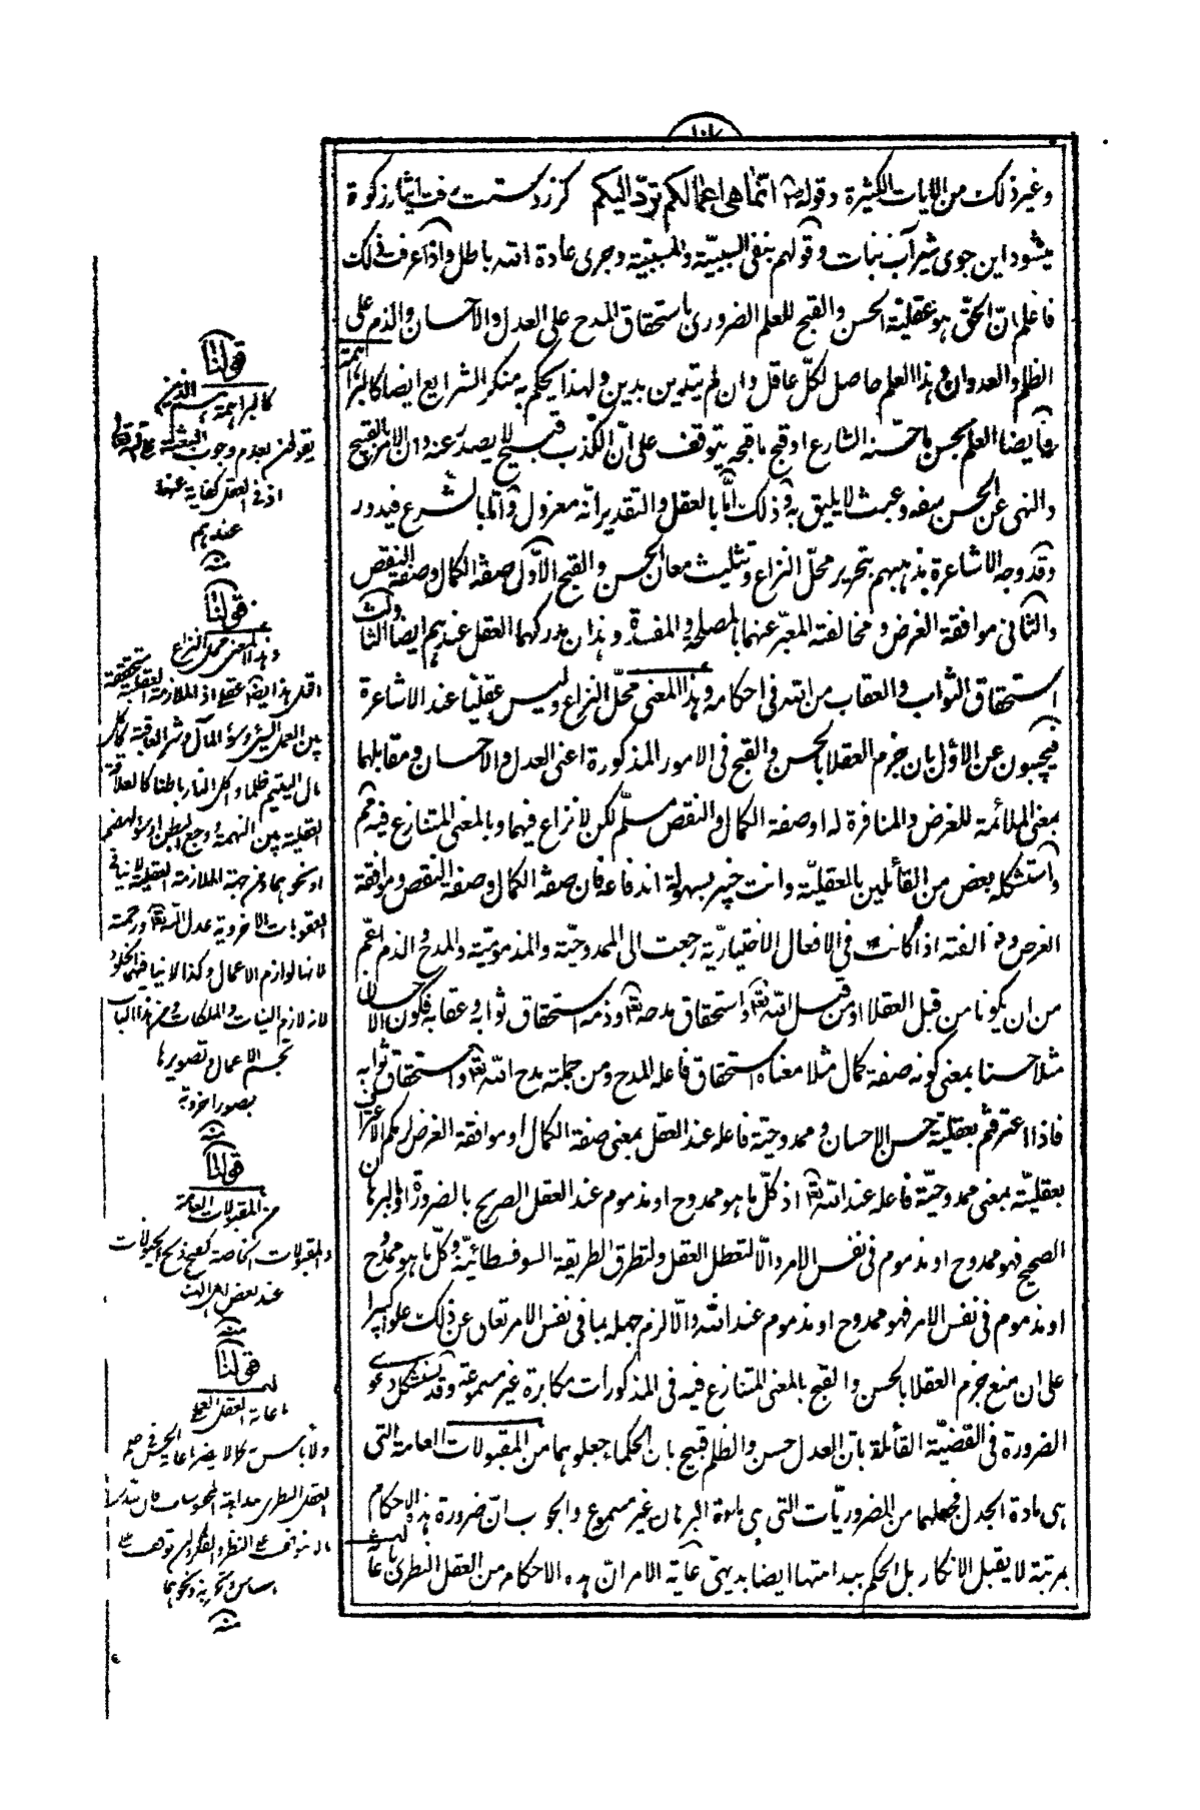 وغير ذلك من الايات الكثيرة وقوله ص انّما هى اعمالكم تردّ اليكم كرز دستت رفت ايثار زكوة
ميشود اين جوى شير آب نبات وقولهم بنفى السببيّة والمسببّية وجرى عادة الله باطل واذا عرفت ذلك
فاعلم انّ الحقّ هو عقليّة الحسن والقبح للعلم الضرورى باستحقاق المدح على العدل والاحسان والذم على
الظلم والعدوان وهذا العلم حاصل لكلّ عاقل وان لم يتدين بدين ولهذا يحكم به منكر الشرايع ايضا كالبراهمة
وايضا العلم بحسن ما حسّنه الشارع او قبح ما قبحه يتوقف على انّ الكذب قبيح لا يصدر عنه وان الامر بالقبيح
والنهى عن الحسن سفه وعبث لا يليق به وذلك امّا بالعقل والتقدير انّه معزول وامّا بالشّرع فيدور
وقد وجه الاشاعرة مذهبهم بتحرير محلّ النزاع وتثليث معانى الحسن والقبح الاوّل صفة الكمال وصفة النقص
والثانى موافقة الغرض ومخالفته المعبّر عنهما بالمصلحة والمفسدة وهذان يدركهما العقل عندهم ايضا الثالث
استحقاق الثواب والعقاب من الله فى احكامه وهذا المعنى محلّ النزاع وليس عقليّا عند الاشاعرة
فيجيبون عن الاوّل بان جزم العقلا بالحسن والقبح فى الامور المذكورة اعنى العدل والاحسان ومقابلهما
بمعنى الملائمة للغرض والمنافرة له او صفة الكمال والنقص مسلّم لكن لا نزاع فيهما وبالمعنى المتنازع فيه مم
واستشكله بعض من القائلين بالعقليّة وانت خبير بسهولة اندفاعه فان صفة الكمال وصفة النقص وموافقة
الغرض ومخالفته اذا كانت فى الافعال الاختياريّة رجعت الى الممدوحيّة والمذموميّة والمدح والذم اعمّ
من ان يكونا من قبل العقلا او من قبل اللّه تعالى واستحقاق مدحه تعالى وذمّه استحقاق ثوابه وعقابه فكون الاحسان
مثلا حسنا بمعنى كونه صفة كمال مثلا معناه استحقاق فاعله المدح ومن جملته مدح اللّه تعالى واستحقاق ثوابه
فاذا اعترفتم بعقليّة حسن الاحسان وممدوحيّة فاعله عند العقل بمعنى صفة الكمال او موافقة الغرض لزمكم الاعتراف
بعقليّته بمعنى ممدوحيّة فاعله عند اللّه تعالى اذ كلّ ما هو ممدوح او مذموم عند العقل الصريح بالضرورة او بالبرهان
الصحيح فهو ممدوح او مذموم فى نفس الامر والّا لتعطل العقل ولتطرق الطريقة السوفسطائيّة وكلّ ما هو ممدوح
او مذموم فى نفس الامر فهو ممدوح او مذموم عند اللّه والّا لزم جهله بما فى نفس الامر تعالى عن ذلك علوا كبيرا
على ان منع جزم العقلا بالحسن والقبح بالمعنى المتنازع فيه فى المذكورات مكابرة غير مسموعة وقد يستشكل دعوى
الضرورة فى القضيّة القائلة بانّ العدل حسن والظلم قبيح بان الحكماء جعلوهما من المقبولات العامة التى
هى مادة الجدل فجعلهما من الضروريّات التى هى مادة البرهان غير مسموع والجواب انّ ضرورة هذه الاحكام
بمرتبة لا يقبل الانكار بل الحكم ببداهتها ايضا بديهى غاية الامر انّ هذه الاحكام من العقل النظرى باعانة
قولنا
كالبراهمة
يقولون بعدم وجوب البعثة على الله تعالى
اذ فى العقل كفاية عنها
عندهم
منه
قولنا
وهذا المعنى محل النزاع
اقول هذا ايضا عقلى اذ الملازمة العقلية متحققة
بين العمل السيّئ وسوء المآل وشر العاقبة كاكل
مال اليتيم ظلما واكل النار باطنا كالعلاقة
العقلية بين النهمة ووجع البطن او سوء الهضم
او نحوهما ومن جهة الملازمة العقلية لا ينافى
العقوبات الاخروية عدل الله تعالى ورحمته
لانها لوازم الاعمال وكذا لا ينافيهما الخلود
لانه لازم النيات والملكات ومن هذا الباب
تجسم الاعمال وتصويرها
بصور اخروية
منه
قولنا
من المقبولات العامة
والمقبولات الخاصة كقبح ذبح الحيوانات
عند بعض اهل الهند
منه
قولنا
باعانة العقل العملى
ولا باس
العقل النظرى بداهة المحسوسات فان
ما لا يتوقف على النظر والفكر وان توقف على
احساس وتجربة ونحوهما
منه